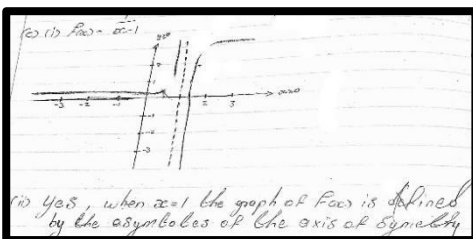 (c) (i) F(x) = x-1
y(x)
2
-3 -2 -1 2 3 x(x)
-1
-2
-3
(ii) Yes, when x=1 the graph of F(x) is defined
by the asymbotes of the axis of Symetry